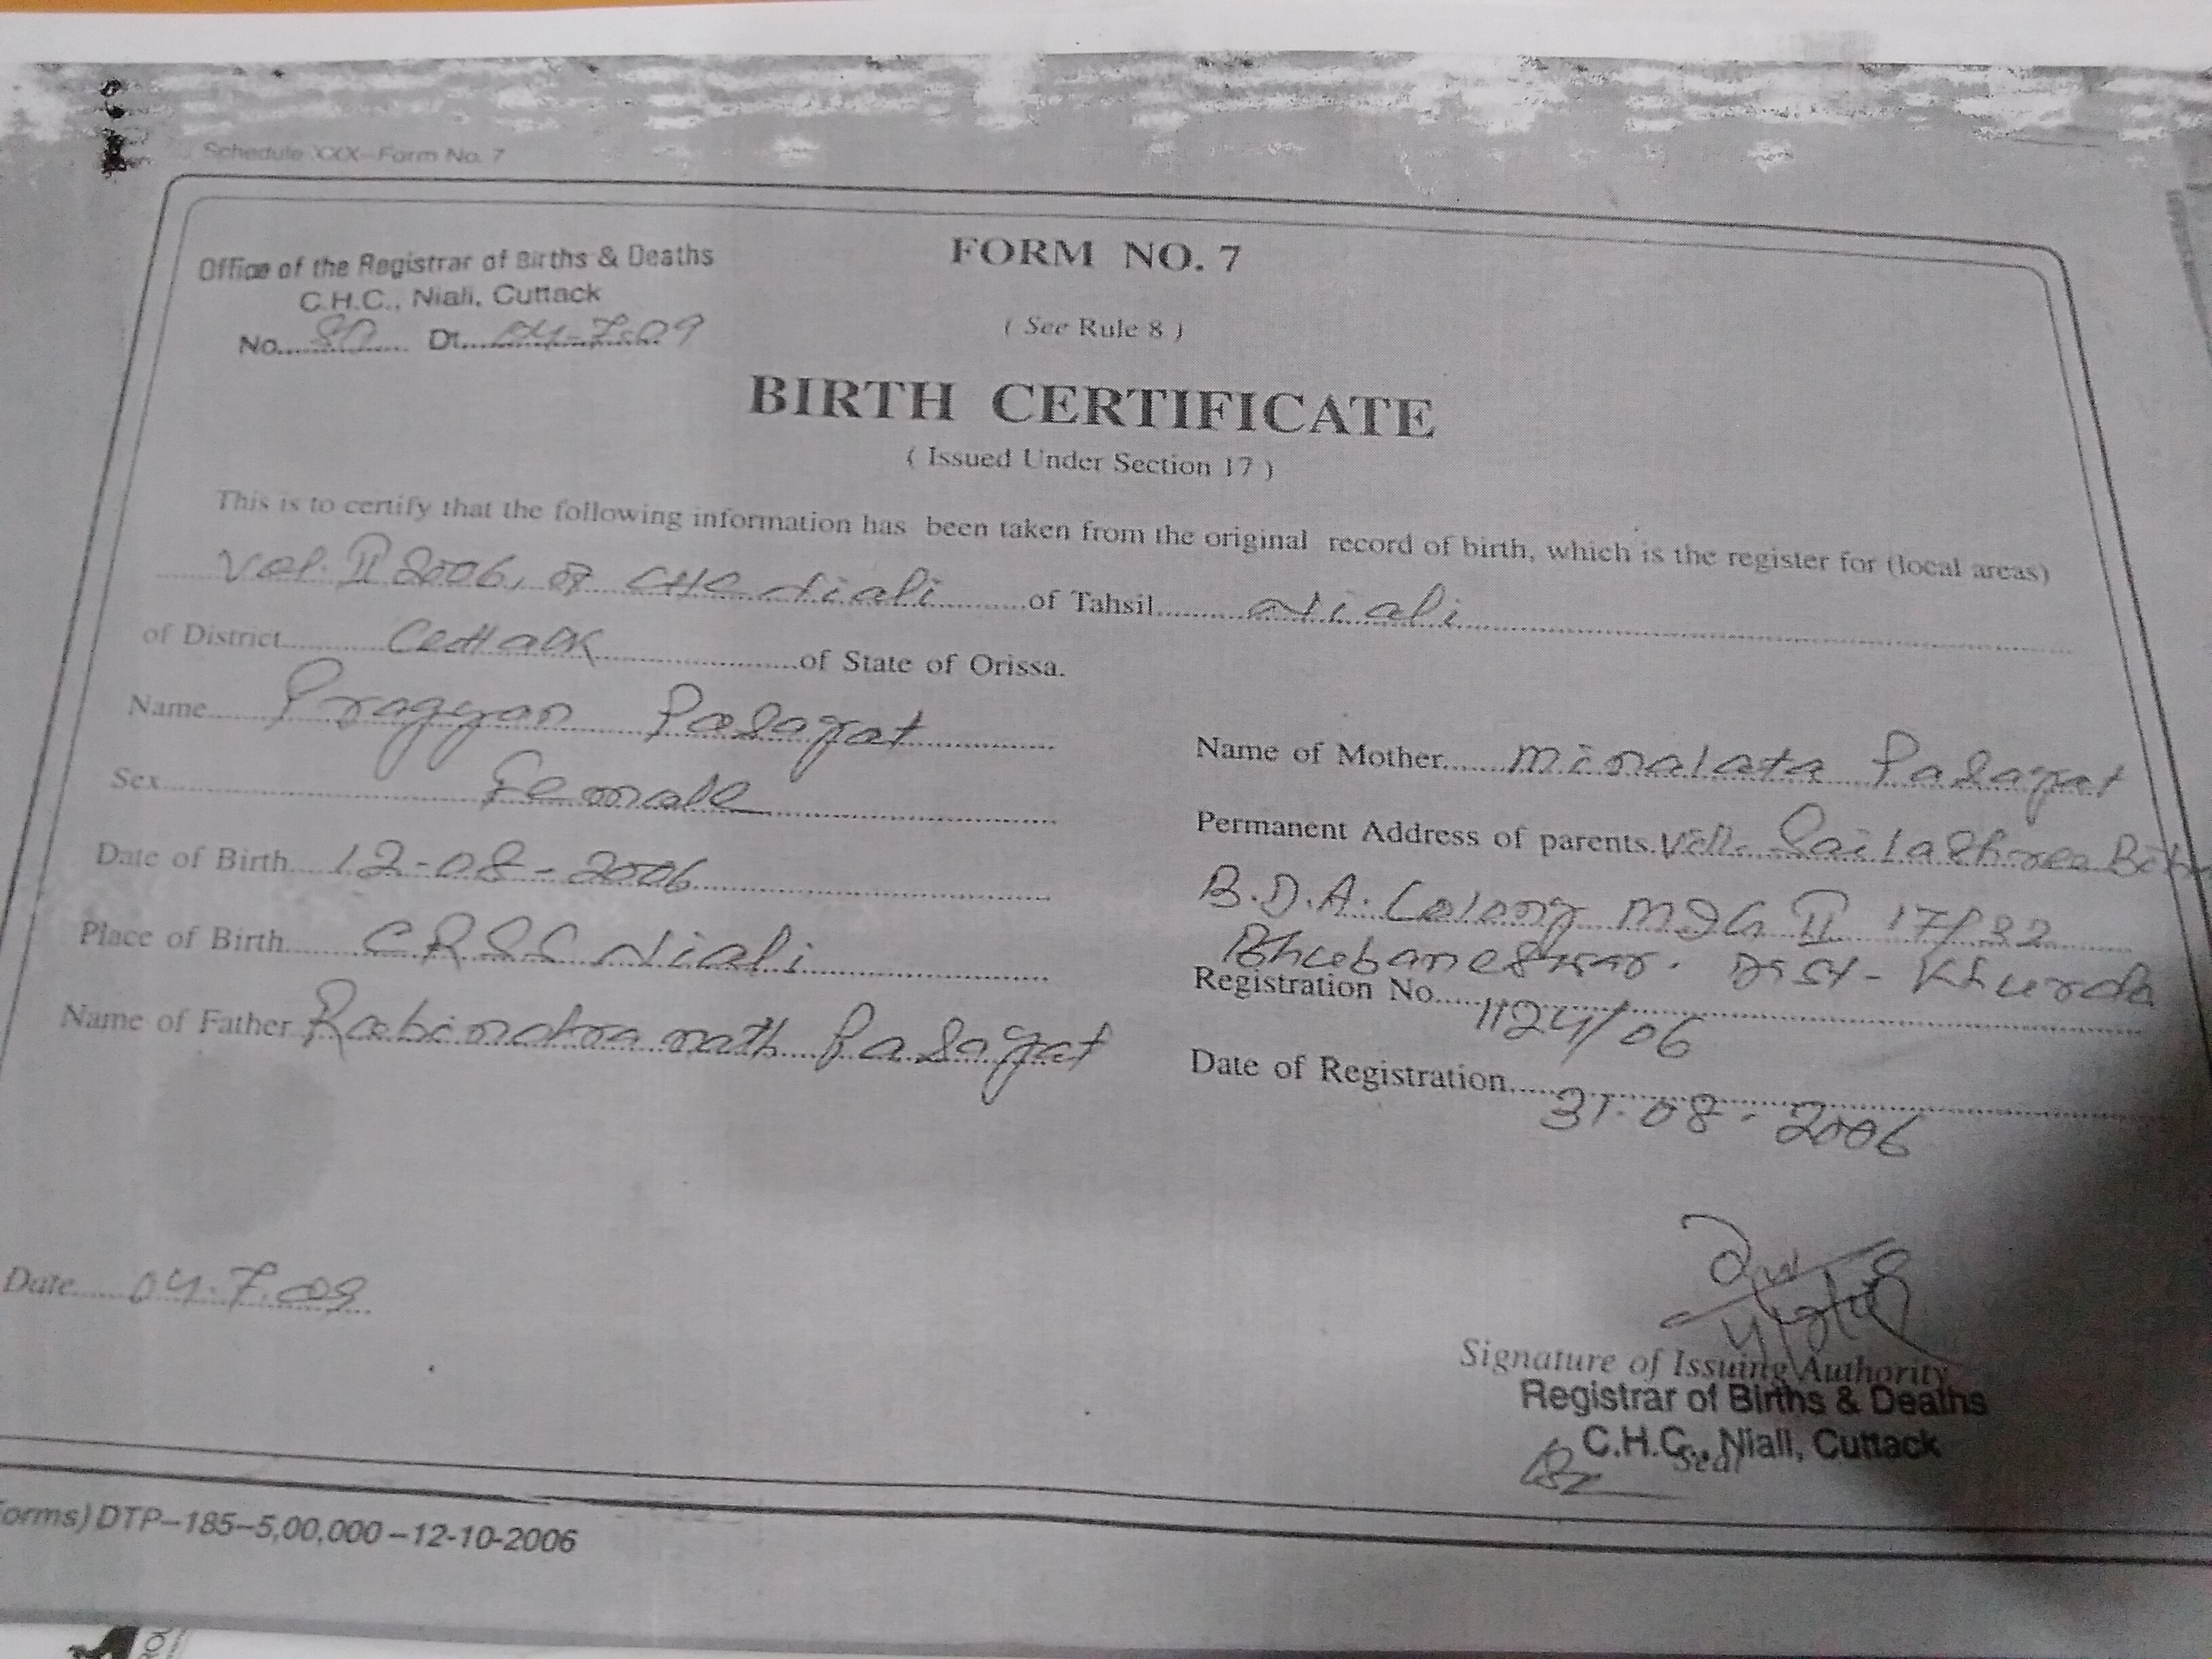 Schedule XXX-Form No. 7
Office of the Registrar of Births & Deaths
C.H.C., Niali, Cuttack
No. 80 Dt. 04-7-09
FORM NO. 7
( See Rule 8 )
BIRTH CERTIFICATE
( Issued Under Section 17 )
This is to certify that the following information has been taken from the original record of birth, which is the register for (local areas)
Vol. II 2006, of CHC Niali of Tahsil Niali
of District Cuttack of State of Orissa.
Name Pragyan Pasayat
Sex Female
Date of Birth 12-08-2006
Place of Birth CRSS Niali
Name of Father Rabindra nath Pasayat
Name of Mother Minalata Pasayat
Permanent Address of parents Vill. Sailashree
B.D.A. Colony MIG II 17/82
Bhubaneswar. Dist- Khurda
Registration No. 1124/06
Date of Registration 31-08-2006
Date 04.7.09
Signature of Issuing Authority
Registrar of Births & Deaths
C.H.C., Niali, Cuttack
Seal
orms) DTP-185-5,00,000-12-10-2006